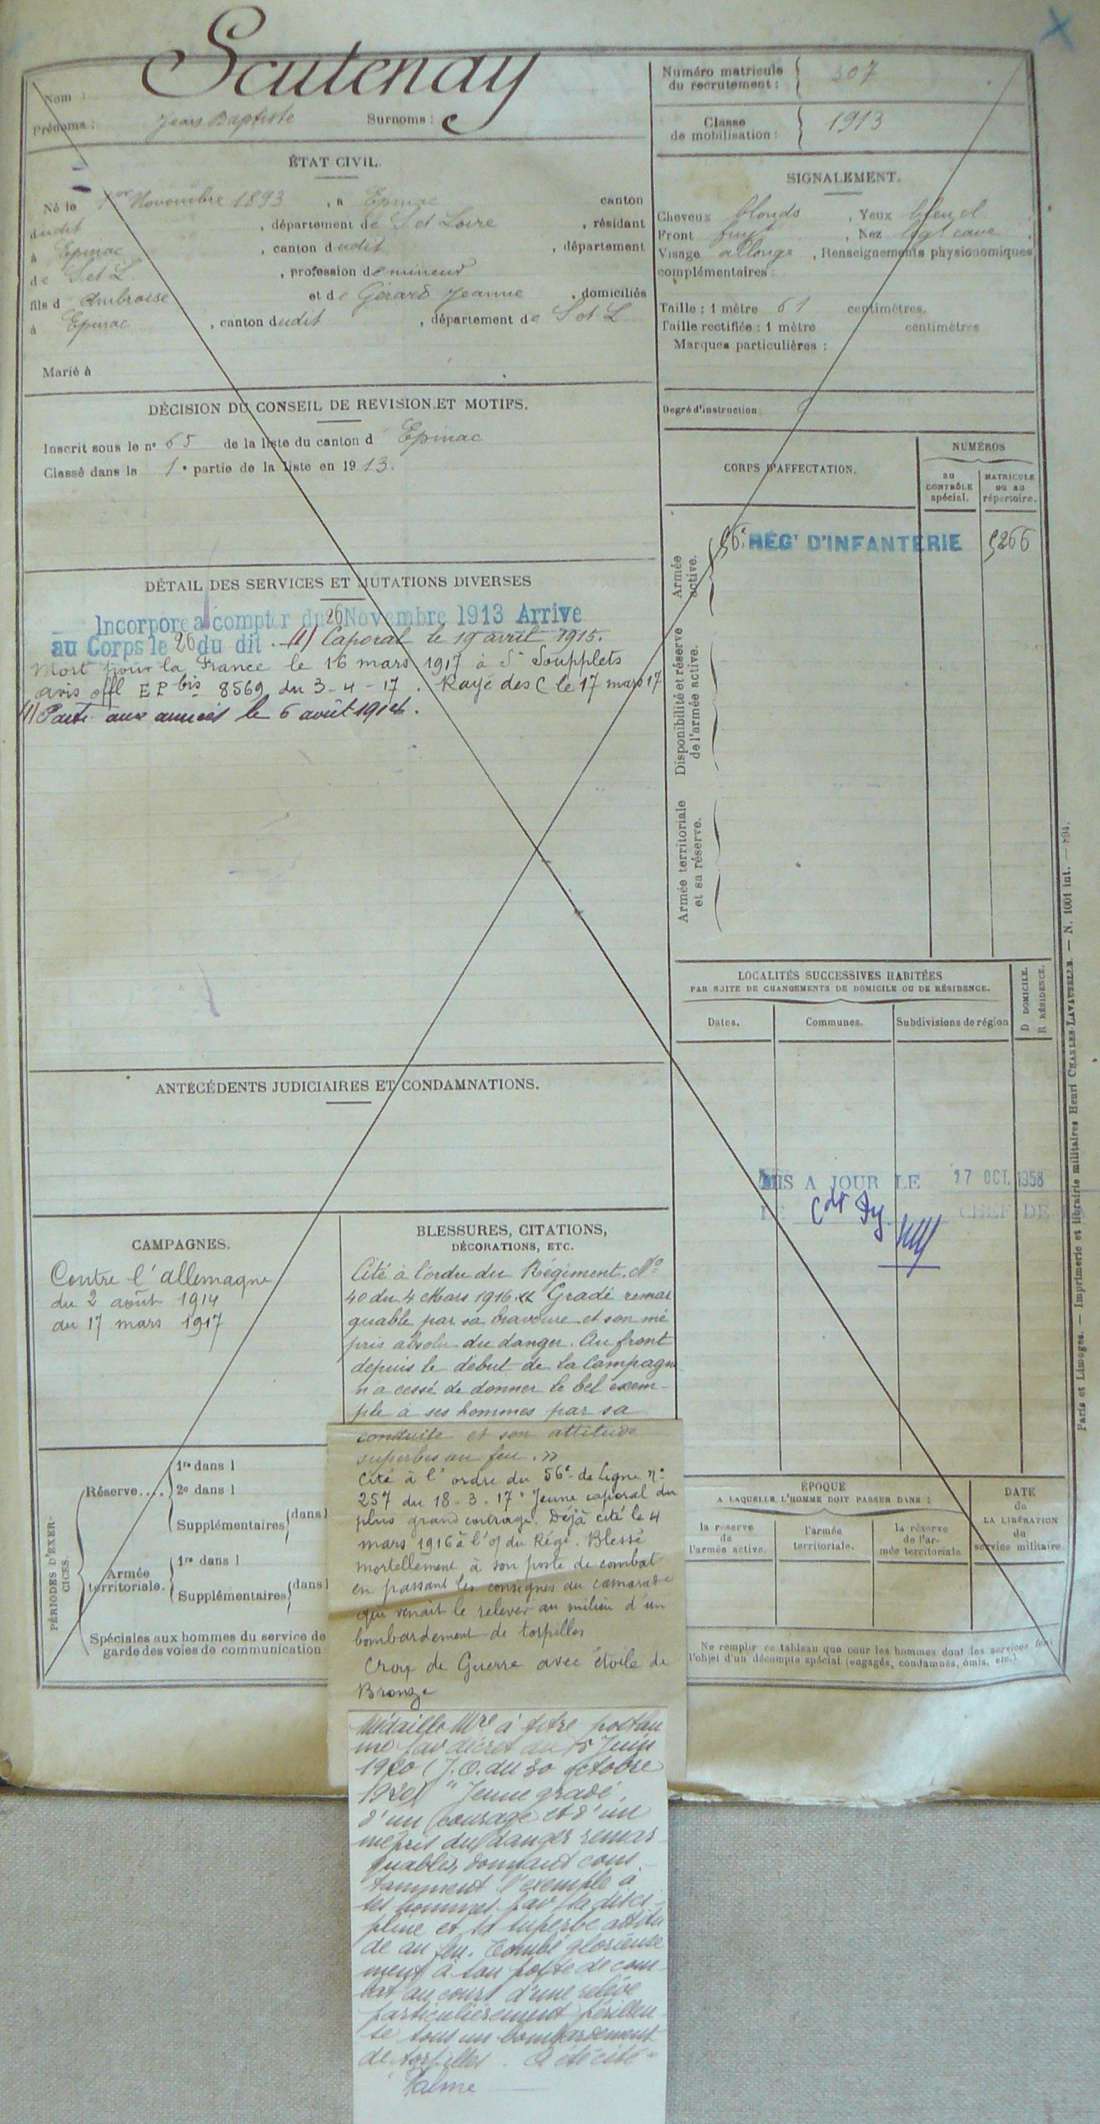 Scutenay
Nom :
Prénoms : Jean Baptiste Surnoms :
Numéro matricule du recrutement : 307
Classe de mobilisation : 1913
ÉTAT CIVIL.
Né le 1er Novembre 1893, à Epinac canton
dudit, département de S et Loire, résidant
à Epinac, canton dudit, département
de S et L, profession de mineur
fils d Ambroise et de Gérard Jeanne, domiciliés
à Epinac, canton dudit, département de S et L
Marié à
SIGNALEMENT.
Cheveux blonds, Yeux bleu
Front fuyt, Nez cave
Visage allongé, Renseignements physionomiques
complémentaires :
Taille : 1 mètre 61 centimètres.
Taille rectifiée : 1 mètre centimètres
Marques particulières :
Degré d'instruction
DÉCISION DU CONSEIL DE REVISION ET MOTIFS.
Inscrit sous le n° 65 de la liste du canton d Epinac
Classé dans la 1e partie de la liste en 1913.
CORPS D'AFFECTATION.
NUMÉROS
AU CONTRÔLE spécial.
MATRICULE OU AU répertoire.
Armée active.
56e RÉGt D'INFANTERIE 5266
Disponibilité et réserve de l'armée active.
Armée territoriale et sa réserve.
DÉTAIL DES SERVICES ET MUTATIONS DIVERSES
Incorporé à compter du 26 Novembre 1913 Arrivé
au Corps le 26 du dit. (1) Caporal le 19 avril 1915.
Mort pour la France le 16 mars 1917 à St Soupplets
avis offl EP bis 8569 du 3-4-17. Rayé des C le 17 mars 17
(1) Parti aux armées le 6 août 1914.
LOCALITÉS SUCCESSIVES HABITÉES
PAR SUITE DE CHANGEMENTS DE DOMICILE OU DE RÉSIDENCE.
Dates.
Communes.
Subdivisions de région
D DOMICILE.
R RÉSIDENCE.
ANTÉCÉDENTS JUDICIAIRES ET CONDAMNATIONS.
MIS A JOUR LE 17 OCT. 1958
CHEF DE
CAMPAGNES.
Contre l'allemagne
du 2 août 1914
au 17 mars 1917
BLESSURES, CITATIONS,
DÉCORATIONS, ETC.
Cité à l'ordre du Régiment. No
40 du 4 Mars 1916 « Gradé remar
quable par sa bravoure et son mé
pris absolu du danger. Au front
depuis le début de la Campagne
n'a cessé de donner le bel exem-
ple à ses hommes par sa
conduite et son attitude
superbes au feu. »
Cité à l'ordre du 56e de Ligne no
257 du 18-3-17 "Jeune caporal du
plus grand courage. Déjà cité le 4
mars 1916 à l'O/ du Régt. Blessé
mortellement à son poste de combat
en passant les consignes au camarade
qui venait le relever au milieu d'un
bombardement de torpilles
Croix de Guerre avec étoile de
Bronze
Médaille Mre à titre posthu
me par décret du 15 Juin
1920 (J.O. du 30 octobre
1920) "Jeune gradé,
d'un courage et d'un
mépris du danger remar
quables, donnant cons
tamment l'exemple à
ses hommes par sa disci
pline et sa superbe attitu
de au feu. Tombé glorieuse
ment à son poste de com
bat au cours d'une relève
particulièrement périlleu
se sous un bombardement
de torpilles. A été cité"
Palme
PÉRIODES D'EXERCICES.
Réserve....
1re dans l
2e dans l
Supplémentaires dans l
Armée territoriale.
1re dans l
Supplémentaires dans l
Spéciales aux hommes du service de
garde des voies de communication
ÉPOQUE
A LAQUELLE L'HOMME DOIT PASSER DANS :
la réserve de l'armée active.
l'armée territoriale.
la réserve de l'armée territoriale
DATE de LA LIBÉRATION du service militaire
Ne remplir ce tableau que pour les hommes dont les services font
l'objet d'un décompte spécial (engagés, condamnés, omis, etc.).
Paris et Limoges. — Imprimerie et librairie militaires Henri CHARLES-LAVAUZELLE. — N. 1001 int. — 894.